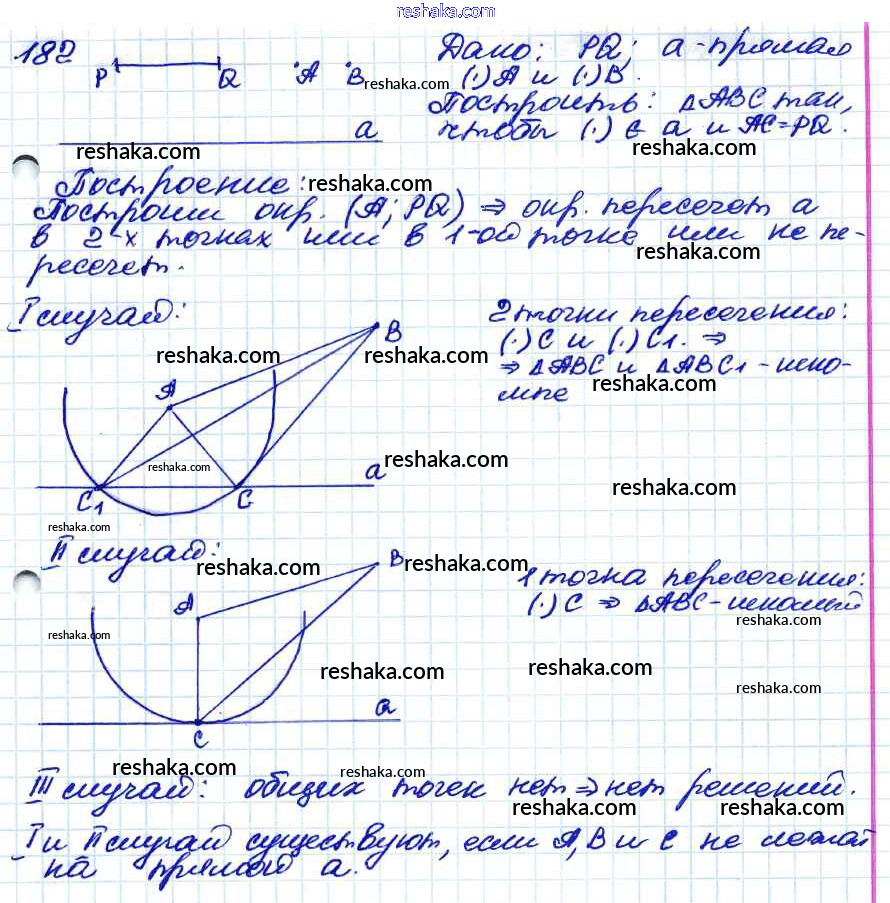 reshaka.com
182
P Q A B
reshaka.com
a
reshaka.com
Дано: PQ; a-прямая
(·)A и (·)B.
Построить: ΔABC так,
чтобы (·) C a и AC=PQ.
reshaka.com
Построение:
reshaka.com
Построим окр. (A; PQ) ⇒ окр. пересечет a
в 2-х точках или в 1-ой точке или не пе-
ресечет.
reshaka.com
I случай:
B
reshaka.com
reshaka.com
A
reshaka.com
a
reshaka.com
C1 C
reshaka.com
2 точки пересечения:
(·)C и (·)C1. ⇒
⇒ ΔABC и ΔABC1 - иско-
мые
reshaka.com
reshaka.com
II случай:
reshaka.com
B
reshaka.com
A
reshaka.com
reshaka.com
a
C
1 точка пересечения:
(·)C ⇒ ΔABC-искомый
reshaka.com
reshaka.com
reshaka.com
reshaka.com
reshaka.com
III случай: общих точек нет ⇒ нет решений.
reshaka.com
reshaka.com
I и II случай существуют, если A, B и C не лежат
на прямой a.